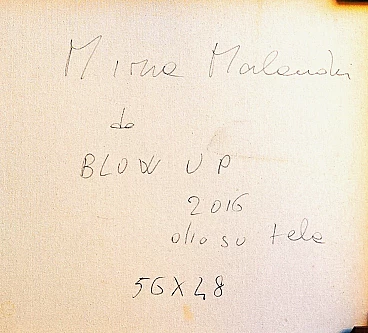 Mirna
da
BLOW UP
2016
olio su tela
56X48